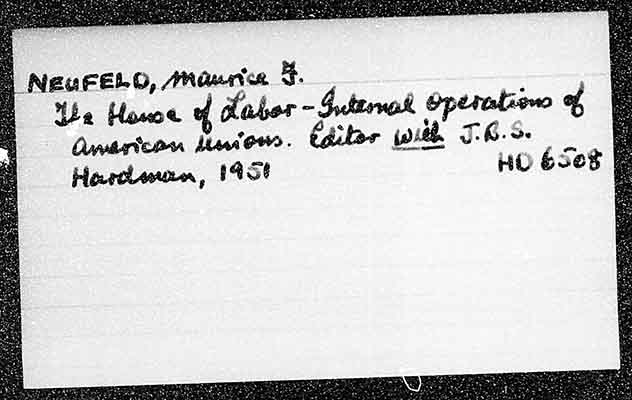 NEUFELD, Maurice F.
The House of Labor - Internal Operations of
American Unions. Editor with J.B.S.
Hardman, 1951 HD 6508